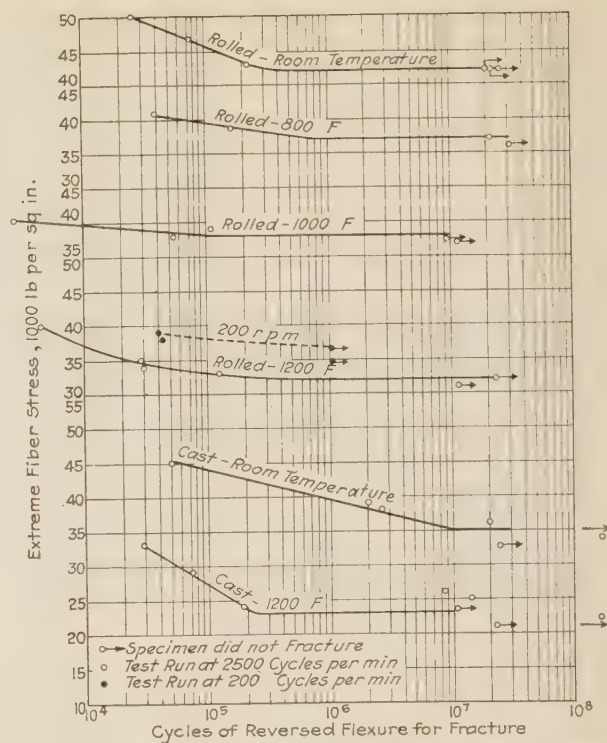 50
45
40
45
40
35
50
45
40
35
50
45
40
35
30
55
50
45
40
35
30
25
20
15
10
Extreme Fiber Stress, 1000 lb per sq in.
Rolled-Room Temperature
Rolled-800 F
Rolled-1000 F
200 rpm
Rolled-1200 F
Cast-Room Temperature
Cast-1200 F
Specimen did not Fracture
Test Run at 2500 Cycles per min
Test Run at 200 Cycles per min
10⁴ 10⁵ 10⁶ 10⁷ 10⁸
Cycles of Reversed Flexure for Fracture